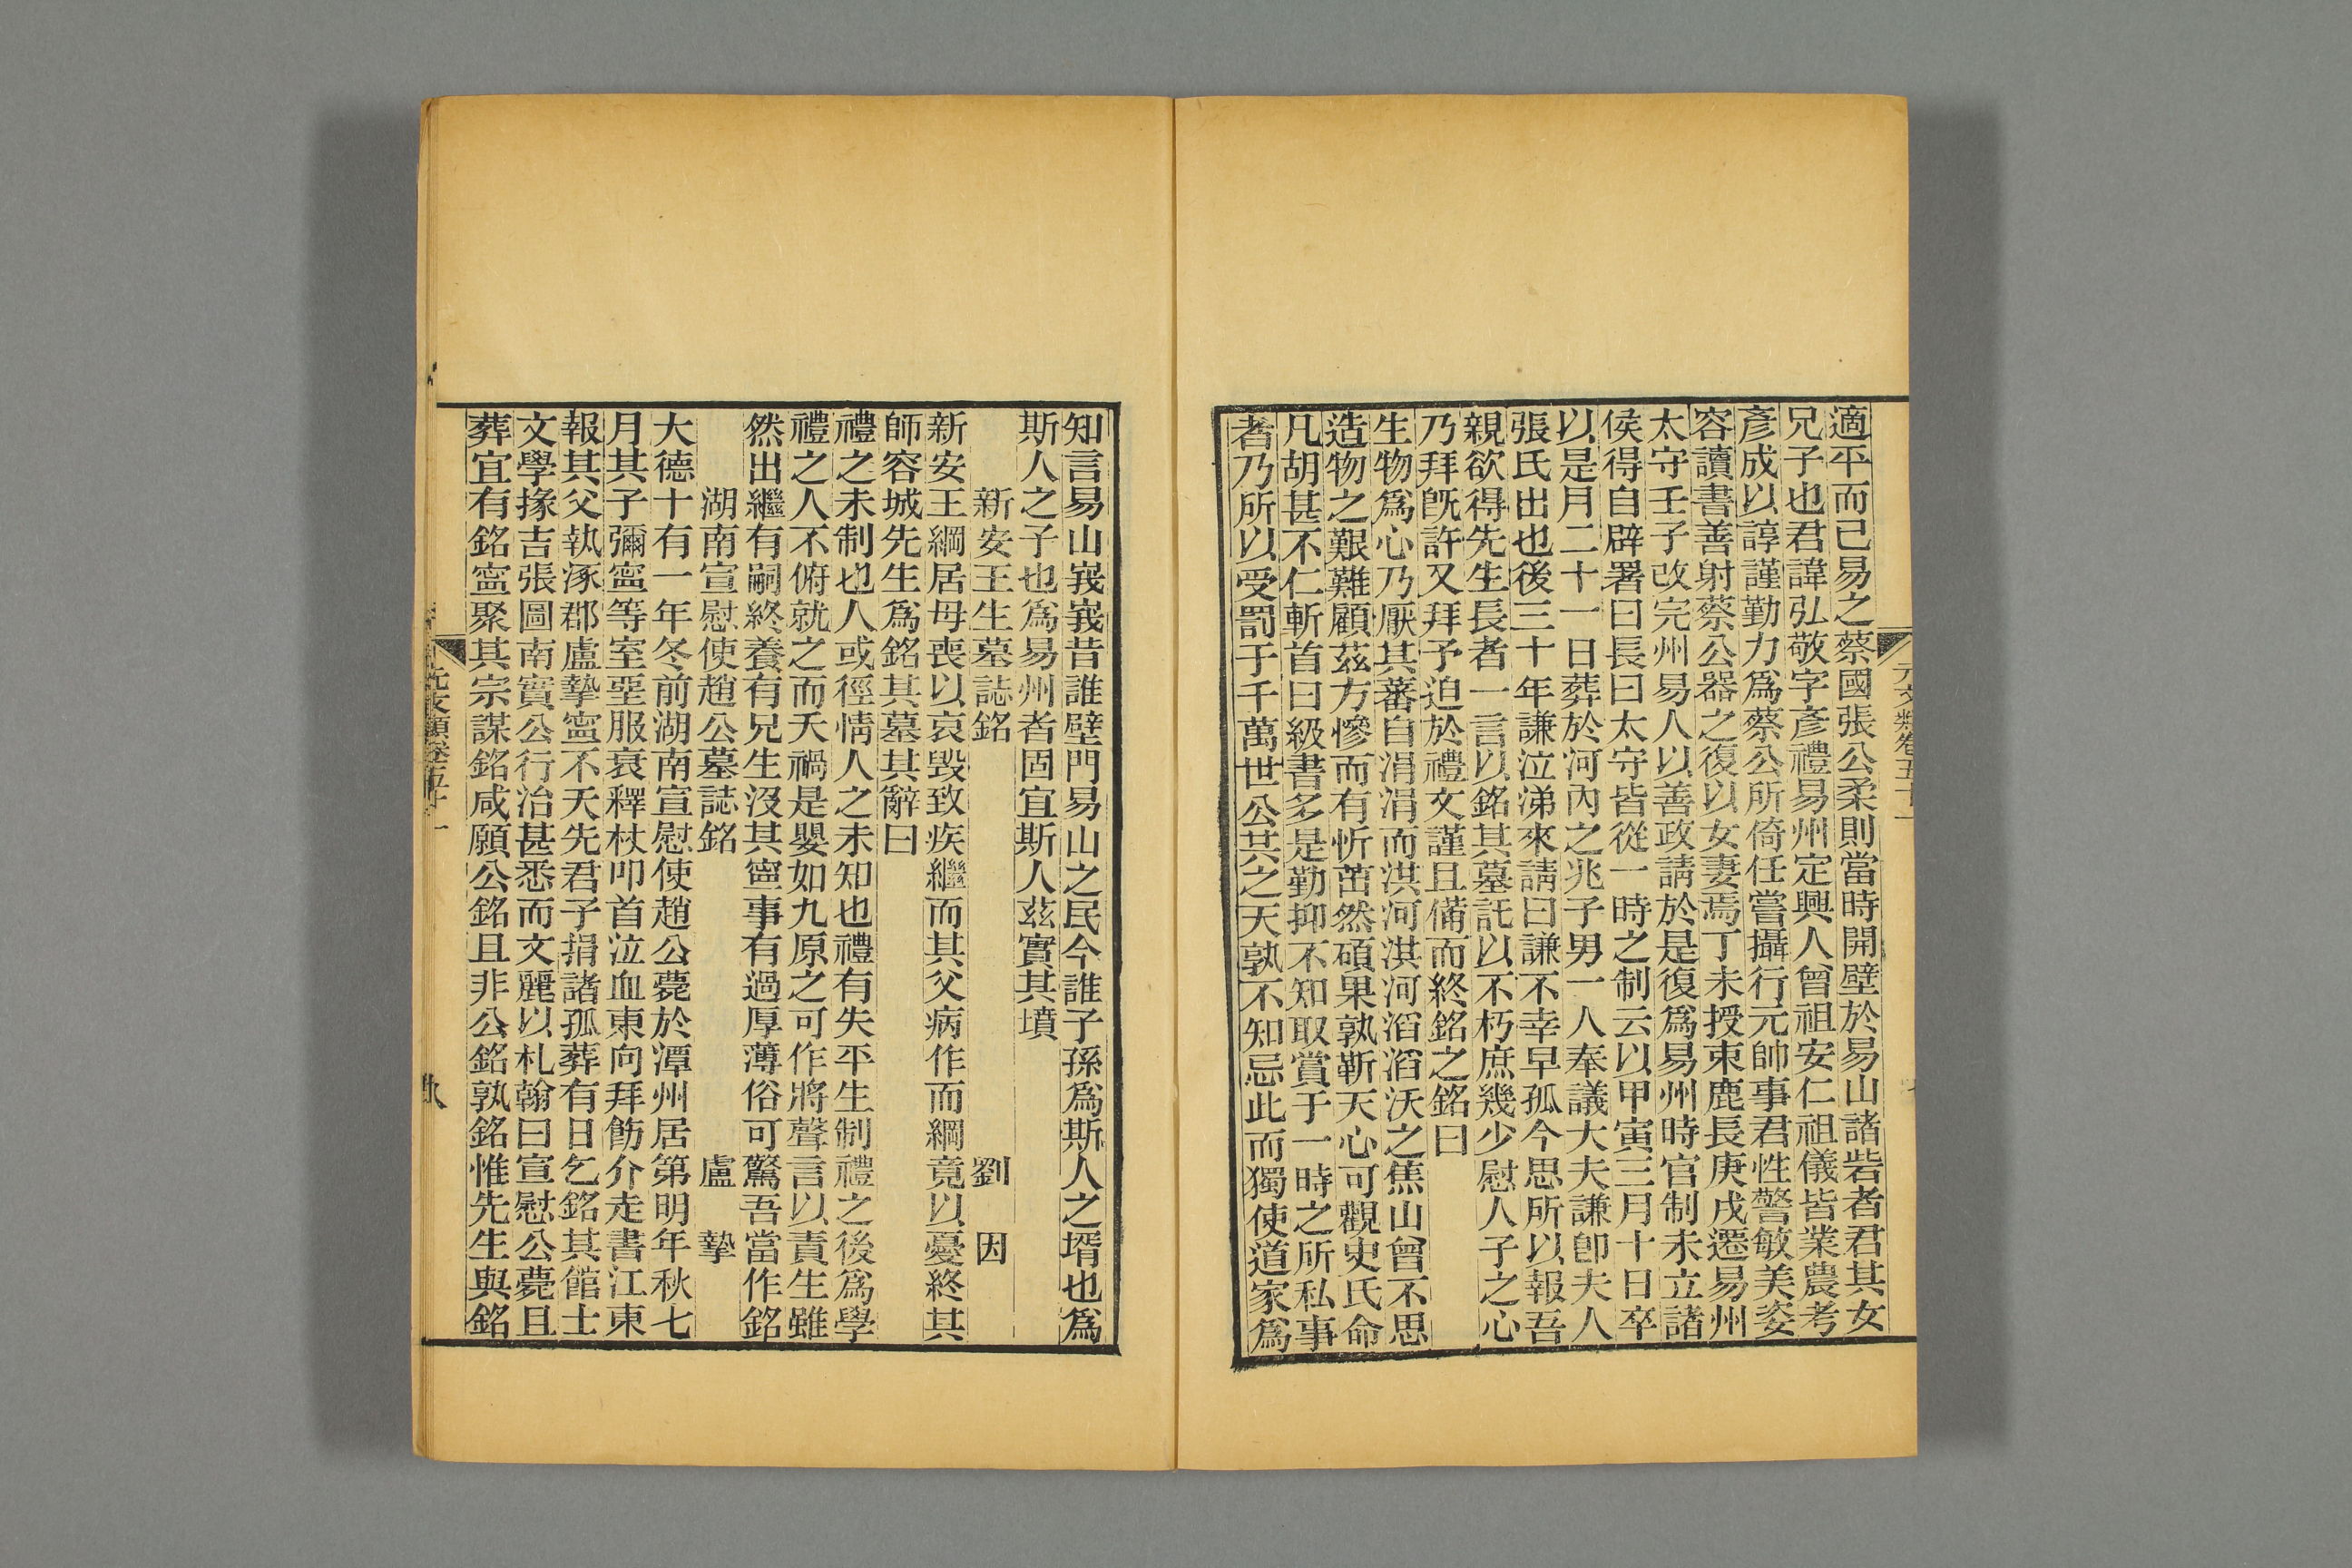 元文類卷五十一
適平而已易之蔡國張公柔則當時開壁於易山諸砦者君其女
兄子也君諱弘敬字彥禮易州定興人曾祖安仁祖儀皆業農考
彥成以諄謹勤力爲蔡公所倚任嘗攝行元帥事君性警敏美姿
容讀書善射蔡公器之復以女妻焉丁未授束鹿長庚戌遷易州
太守壬子改完州易人以善政請於是復爲易州時官制未立諸
侯得自辟署曰長曰太守皆從一時之制云以甲寅三月十日卒
以是月二十一日葬於河內之兆子男一人奉議大夫謙卽夫人
張氏出也後三十年謙泣涕來請曰謙不幸早孤今思所以報吾
親欲得先生長者一言以銘其墓託以不朽庶幾少慰人子之心
乃拜旣許又拜予迫於禮文謹且備而終銘之銘曰
生物爲心乃厭其蕃自涓涓而洪河淇河滔滔沃之焦山曾不思
造物之艱難顧茲方慘而有忻茁然碩果孰靳天心可觀史氏命
凡胡甚不仁斬首曰級書多是勤抑不知取賞于一時之所私事
者乃所以受罰于千萬世公共之天孰不知忌此而獨使道家爲
知言易山峩峩昔誰壁門易山之民今誰子孫爲斯人之壻也爲
斯人之子也爲易州者固宜斯人茲實其墳
新安王生墓誌銘 劉因
新安王綱居母喪以哀毀致疾繼而其父病作而綱竟以憂終其
師容城先生爲銘其墓其辭曰
禮之未制也人或徑情人之未知也禮有失平生制禮之後爲學
禮之人不俯就之而夭禍是嬰如九原之可作將聲言以責生雖
然出繼有嗣終養有兄生沒其寧事有過厚薄俗可驚吾當作銘
湖南宣慰使趙公墓誌銘 盧摯
大德十有一年冬前湖南宣慰使趙公薨於潭州居第明年秋七
月其子彌寧等室堊服衰釋杖叩首泣血東向拜飭介走書江東
報其父執涿郡盧摯寧不夭先君子捐諸孤葬有日乞銘其館士
文學掾吉張圖南實公行治甚悉而文麗以札翰曰宣慰公薨且
葬宜有銘寧聚其宗謀銘咸願公銘且非公銘孰銘惟先生與銘
元文類卷五十一